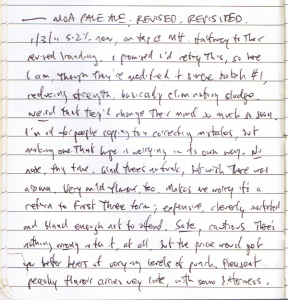 — MOA PALE ALE, REVISED, REVISITED.
1/3/11 5.2% now, on tap @ MH
revised branding. I promised I'd retry this, so here
I am, though they've modified it since batch #1,
reducing strength, basically eliminating sludge
weird that they'd change their mind so much so soon.
I'm all for people copping to & correcting mistakes, but
making one that huge is worrying in its own way. No
nose, this time. And there's no funk, but wish there was
aroma. Very mild flavour, too. Makes me worry it's a
return to first three form; expensive, cleverly marketed
and bland enough not to offend. Safe, cautious. There's
nothing wrong with it, at all. but the price would get
you better beers at varying levels of punch. Pleasant
peachy flavour arrives very late, with some bitterness.